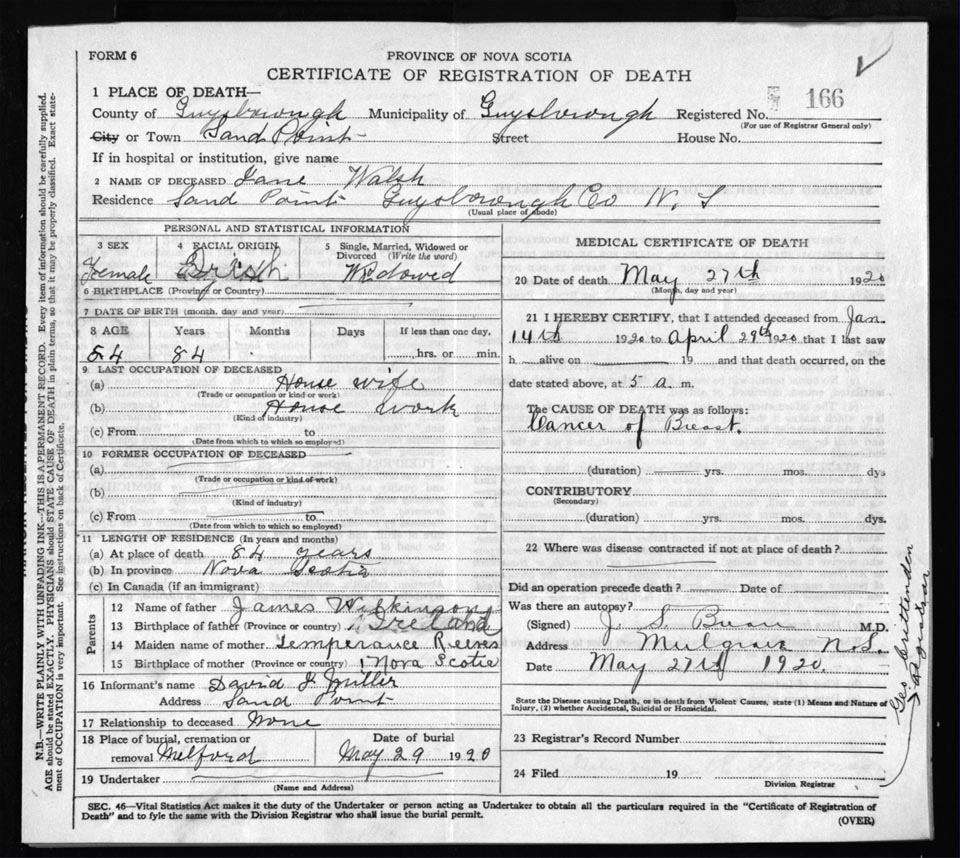 FORM 6
PROVINCE OF NOVA SCOTIA
CERTIFICATE OF REGISTRATION OF DEATH
1 PLACE OF DEATH—
County of Guysborough Municipality of Guysborough Registered No. 166
(For use of Registrar General only)
City or Town Sand Point Street House No.
If in hospital or institution, give name
2 NAME OF DECEASED Jane Walsh
Residence Sand Point Guysborough Co N. S
(Usual place of abode)
PERSONAL AND STATISTICAL INFORMATION
3 SEX 4 RACIAL ORIGIN 5 Single, Married, Widowed or
Divorced (Write the word)
Female Widowed
6 BIRTHPLACE (Province or Country)
7 DATE OF BIRTH (month, day and year)
8 AGE Years Months Days If less than one day,
84 84 hrs. or min.
9 LAST OCCUPATION OF DECEASED
(a) House wife
(Trade or occupation or kind of work)
(b) House work
(Kind of industry)
(c) From to
(Date from which to which so employed)
10 FORMER OCCUPATION OF DECEASED
(a)
(Trade or occupation or kind of work)
(b)
(Kind of industry)
(c) From to
(Date from which to which so employed)
11 LENGTH OF RESIDENCE (In years and months)
(a) At place of death 84 years
(b) In province Nova Scotia
(c) In Canada (if an immigrant)
Parents
12 Name of father James Wilkinson
13 Birthplace of father (Province or country) Ireland
14 Maiden name of mother Temperance Reeves
15 Birthplace of mother (Province or country) Nova Scotia
16 Informant's name David J Miller
Address Sand Point
17 Relationship to deceased None
18 Place of burial, cremation or Date of burial
removal Melford May 29 1920
19 Undertaker
(Name and Address)
MEDICAL CERTIFICATE OF DEATH
20 Date of death May 27th 1920
(Month, day and year)
21 I HEREBY CERTIFY, that I attended deceased from Jan.
14th 1920 to April 29th 1920 that I last saw
h alive on 19 and that death occurred, on the
date stated above, at 5 a. m.
The CAUSE OF DEATH was as follows:
Cancer of Breast.
(duration) yrs. mos. dys
CONTRIBUTORY
(Secondary)
(duration) yrs. mos. dys.
22 Where was disease contracted if not at place of death?
Did an operation precede death? Date of
Was there an autopsy?
(Signed) J. S. M.D.
Address Mulgrave N.S.
Date May 27th 1920.
State the Disease causing Death, or in death from Violent Causes, state (1) Means and Nature of
Injury, (2) whether Accidental, Suicidal or Homicidal.
23 Registrar's Record Number
24 Filed 19
Division Registrar
SEC. 46—Vital Statistics Act makes it the duty of the Undertaker or person acting as Undertaker to obtain all the particulars required in the "Certificate of Registration of
Death" and to fyle the same with the Division Registrar who shall issue the burial permit.
(OVER)
N.B.—WRITE PLAINLY WITH UNFADING INK—THIS IS A PERMANENT RECORD. Every item of information should be carefully supplied.
AGE should be stated EXACTLY. PHYSICIANS should STATE CAUSE OF DEATH in plain terms, so that it may be properly classified. Exact state-
ment of OCCUPATION is very important. See instructions on back of Certificate.
Geo Cruttenden